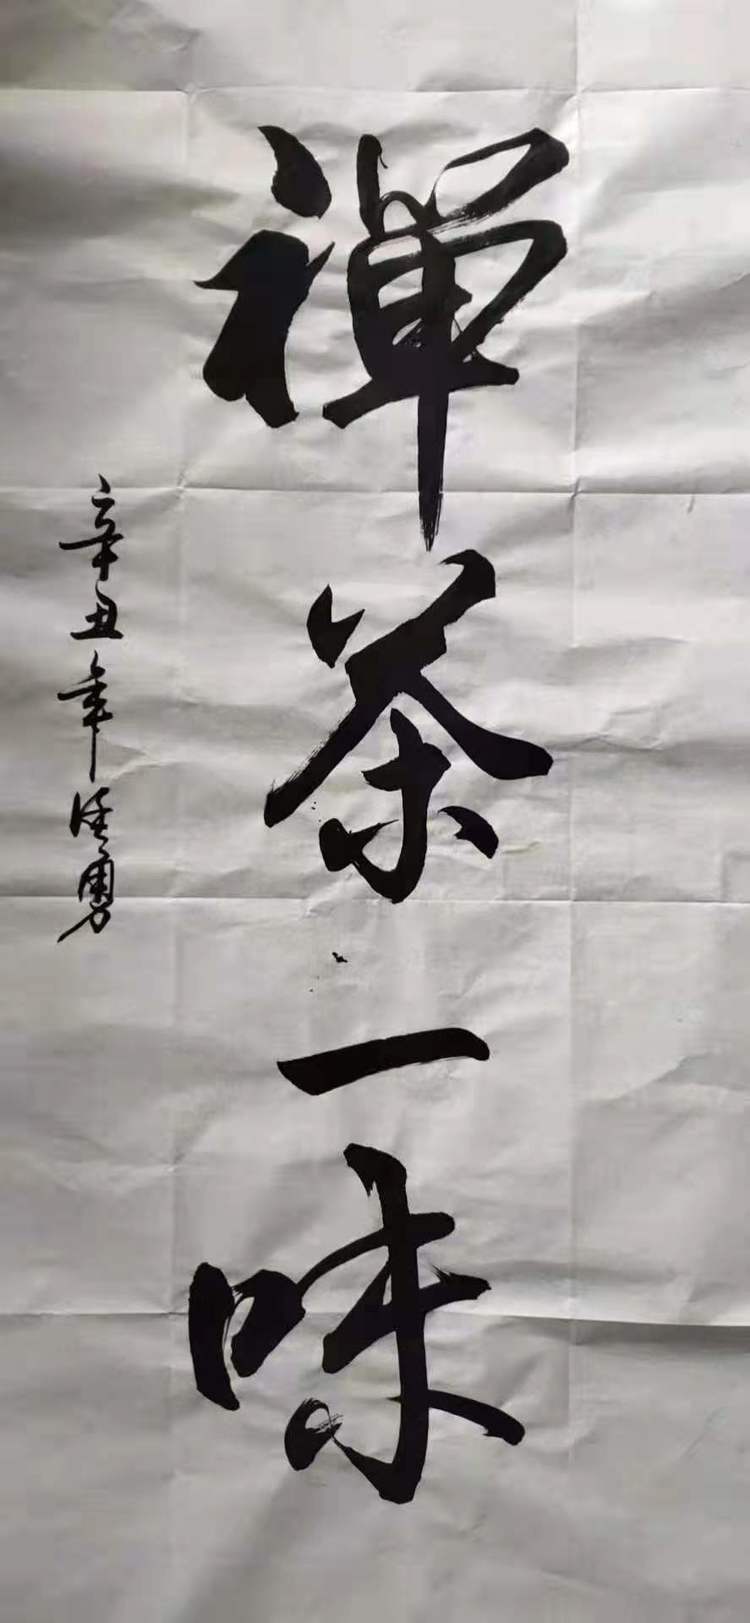 禅茶一味
辛丑年陆勇